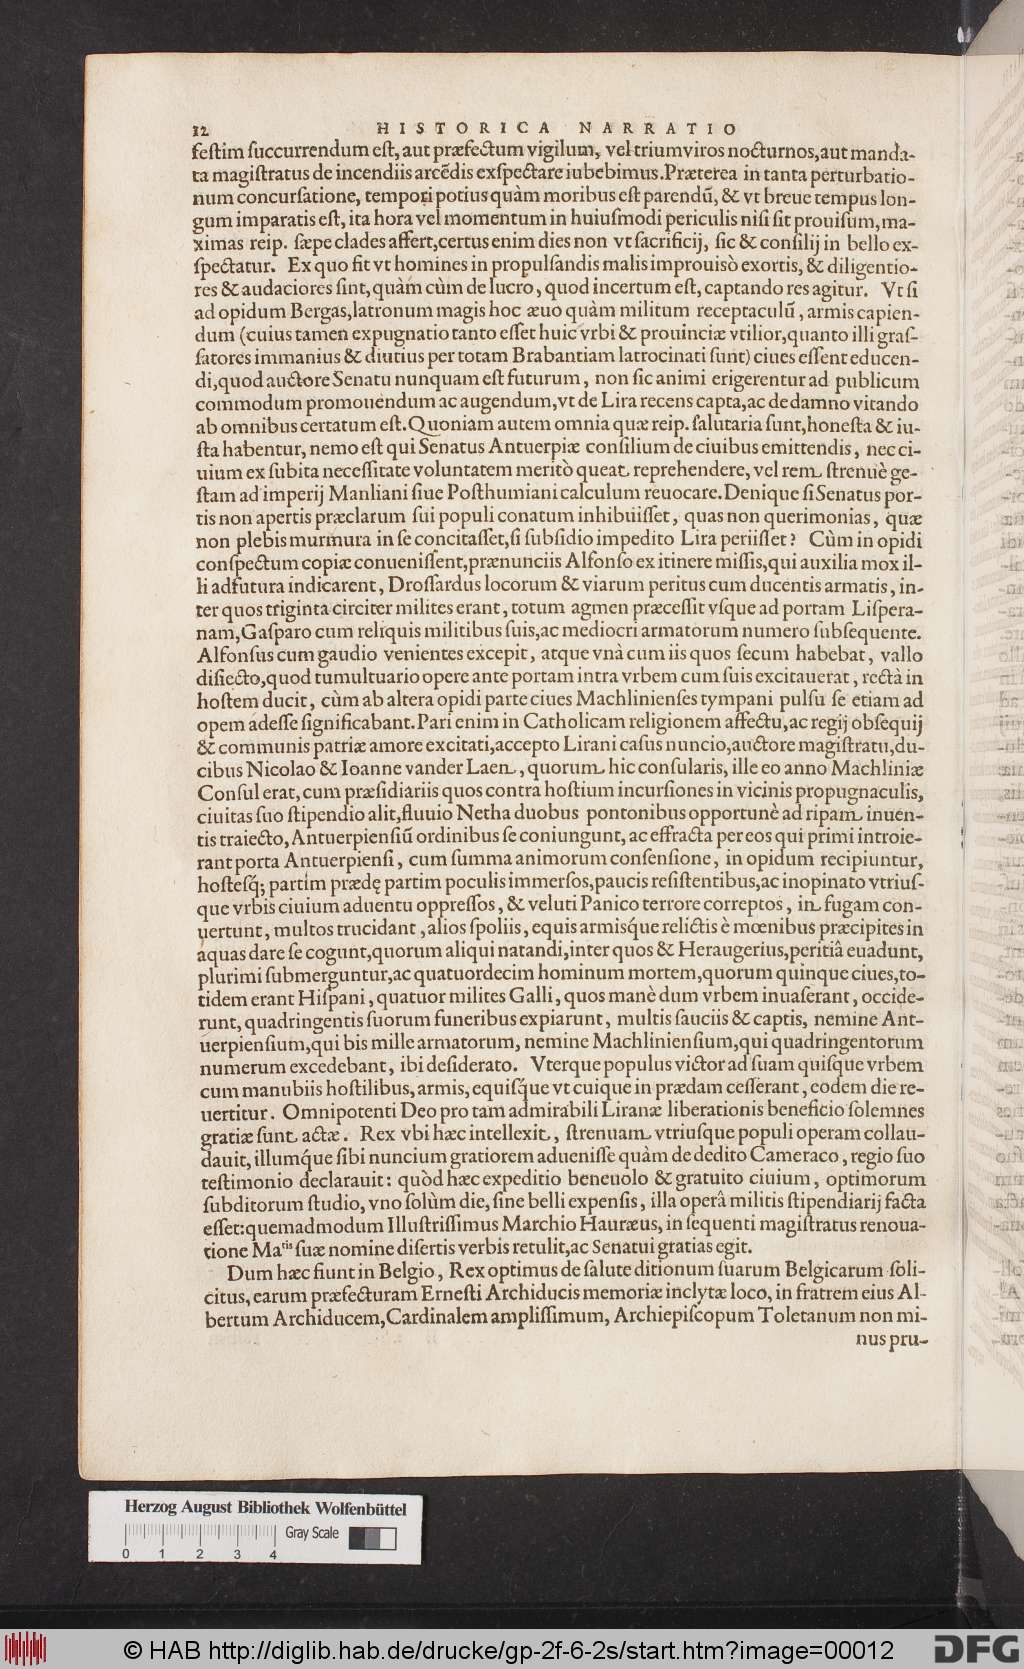 12 HISTORICA NARRATIO
feſtim ſuccurrendum eſt, aut præfectum vigilum, vel triumviros nocturnos, aut manda-
ta magiſtratus de incendiis arcēdis exſpectare iubebimus. Præterea in tanta perturbatio-
num concurſatione, tempori potius quàm moribus eſt parendū, & vt breue tempus lon-
gum imparatis eſt, ita hora vel momentum in huiuſmodi periculis niſi ſit prouiſum, ma-
ximas reip. ſæpe clades affert, certus enim dies non vt ſacrificij, ſic & conſilij in bello ex-
ſpectatur. Ex quo fit vt homines in propulſandis malis improuisò exortis, & diligentio-
res & audaciores ſint, quàm cùm de lucro, quod incertum eſt, captando res agitur. Vt ſi
ad opidum Bergas, latronum magis hoc æuo quàm militum receptaculū, armis capien-
dum (cuius tamen expugnatio tanto eſſet huic vrbi & prouinciæ vtilior, quanto illi graſ-
ſatores immanius & diutius per totam Brabantiam latrocinati ſunt) ciues eſſent educen-
di, quod auctore Senatu nunquam eſt futurum, non ſic animi erigerentur ad publicum
commodum promouendum ac augendum, vt de Lira recens capta, ac de damno vitando
ab omnibus certatum eſt. Quoniam autem omnia quæ reip. ſalutaria ſunt, honeſta & iu-
ſta habentur, nemo eſt qui Senatus Antuerpiæ conſilium de ciuibus emittendis, nec ci-
uium ex ſubita neceſſitate voluntatem meritò queat reprehendere, vel rem ſtrenuè ge-
ſtam ad imperij Manliani ſiue Poſthumiani calculum reuocare. Denique ſi Senatus por-
tis non apertis præclarum ſui populi conatum inhibuiſſet, quas non querimonias, quæ
non plebis murmura in ſe concitaſſet, ſi ſubſidio impedito Lira periiſſet? Cùm in opidi
conſpectum copiæ conueniſſent, prænunciis Alfonſo ex itinere miſſis, qui auxilia mox il-
li adfutura indicarent, Droſſardus locorum & viarum peritus cum ducentis armatis, in-
ter quos triginta circiter milites erant, totum agmen præceſſit vſque ad portam Liſpera-
nam, Gaſparo cum reliquis militibus ſuis, ac mediocri armatorum numero ſubſequente.
Alfonſus cum gaudio venientes excepit, atque vnà cum iis quos ſecum habebat, vallo
diſiecto, quod tumultuario opere ante portam intra vrbem cum ſuis excitauerat, rectà in
hoſtem ducit, cùm ab altera opidi parte ciues Machlinienſes tympani pulſu ſe etiam ad
opem adeſſe ſignificabant. Pari enim in Catholicam religionem affectu, ac regij obſequij
& communis patriæ amore excitati, accepto Lirani caſus nuncio, auctore magiſtratu, du-
cibus Nicolao & Ioanne vander Laen, quorum hic conſularis, ille eo anno Machliniæ
Conſul erat, cum præſidiariis quos contra hoſtium incurſiones in vicinis propugnaculis,
ciuitas ſuo ſtipendio alit, fluuio Netha duobus pontonibus opportunè ad ripam inuen-
tis traiecto, Antuerpienſiū ordinibus ſe coniungunt, ac effracta per eos qui primi introie-
rant porta Antuerpienſi, cum ſumma animorum conſenſione, in opidum recipiuntur,
hoſteſq́; partim prædę partim poculis immerſos, paucis reſiſtentibus, ac inopinato vtriuſ-
que vrbis ciuium aduentu oppreſſos, & veluti Panico terrore correptos, in fugam con-
uertunt, multos trucidant, alios ſpoliis, equis armisq́ue relictis è mœnibus præcipites in
aquas dare ſe cogunt, quorum aliqui natandi, inter quos & Heraugerius, peritiâ euadunt,
plurimi ſubmerguntur, ac quatuordecim hominum mortem, quorum quinque ciues, to-
tidem erant Hiſpani, quatuor milites Galli, quos manè dum vrbem inuaſerant, occide-
runt, quadringentis ſuorum funeribus expiarunt, multis ſauciis & captis, nemine Ant-
uerpienſium, qui bis mille armatorum, nemine Machlinienſium, qui quadringentorum
numerum excedebant, ibi deſiderato. Vterque populus victor ad ſuam quiſque vrbem
cum manubiis hoſtilibus, armis, equiſq́ue vt cuique in prædam ceſſerant, eodem die re-
uertitur. Omnipotenti Deo pro tam admirabili Liranæ liberationis beneficio ſolemnes
gratiæ ſunt actæ. Rex vbi hæc intellexit, ſtrenuam vtriuſque populi operam collau-
dauit, illumq́ue ſibi nuncium gratiorem adueniſſe quàm de dedito Cameraco, regio ſuo
teſtimonio declarauit: quòd hæc expeditio beneuolo & gratuito ciuium, optimorum
ſubditorum ſtudio, vno ſolùm die, ſine belli expenſis, illa operâ militis ſtipendiarij facta
eſſet: quemadmodum Illuſtriſſimus Marchio Hauræus, in ſequenti magiſtratus renoua-
tione Ma<sup>tis</sup> ſuæ nomine diſertis verbis retulit, ac Senatui gratias egit.
Dum hæc fiunt in Belgio, Rex optimus de ſalute ditionum ſuarum Belgicarum ſoli-
citus, earum præfecturam Erneſti Archiducis memoriæ inclytæ loco, in fratrem eius Al-
bertum Archiducem, Cardinalem ampliſſimum, Archiepiſcopum Toletanum non mi-
nus pru-
Herzog August Bibliothek Wolfenbüttel
Gray Scale
0 1 2 3 4
© HAB http://diglib.hab.de/drucke/gp-2f-6-2s/start.htm?image=00012
DFG